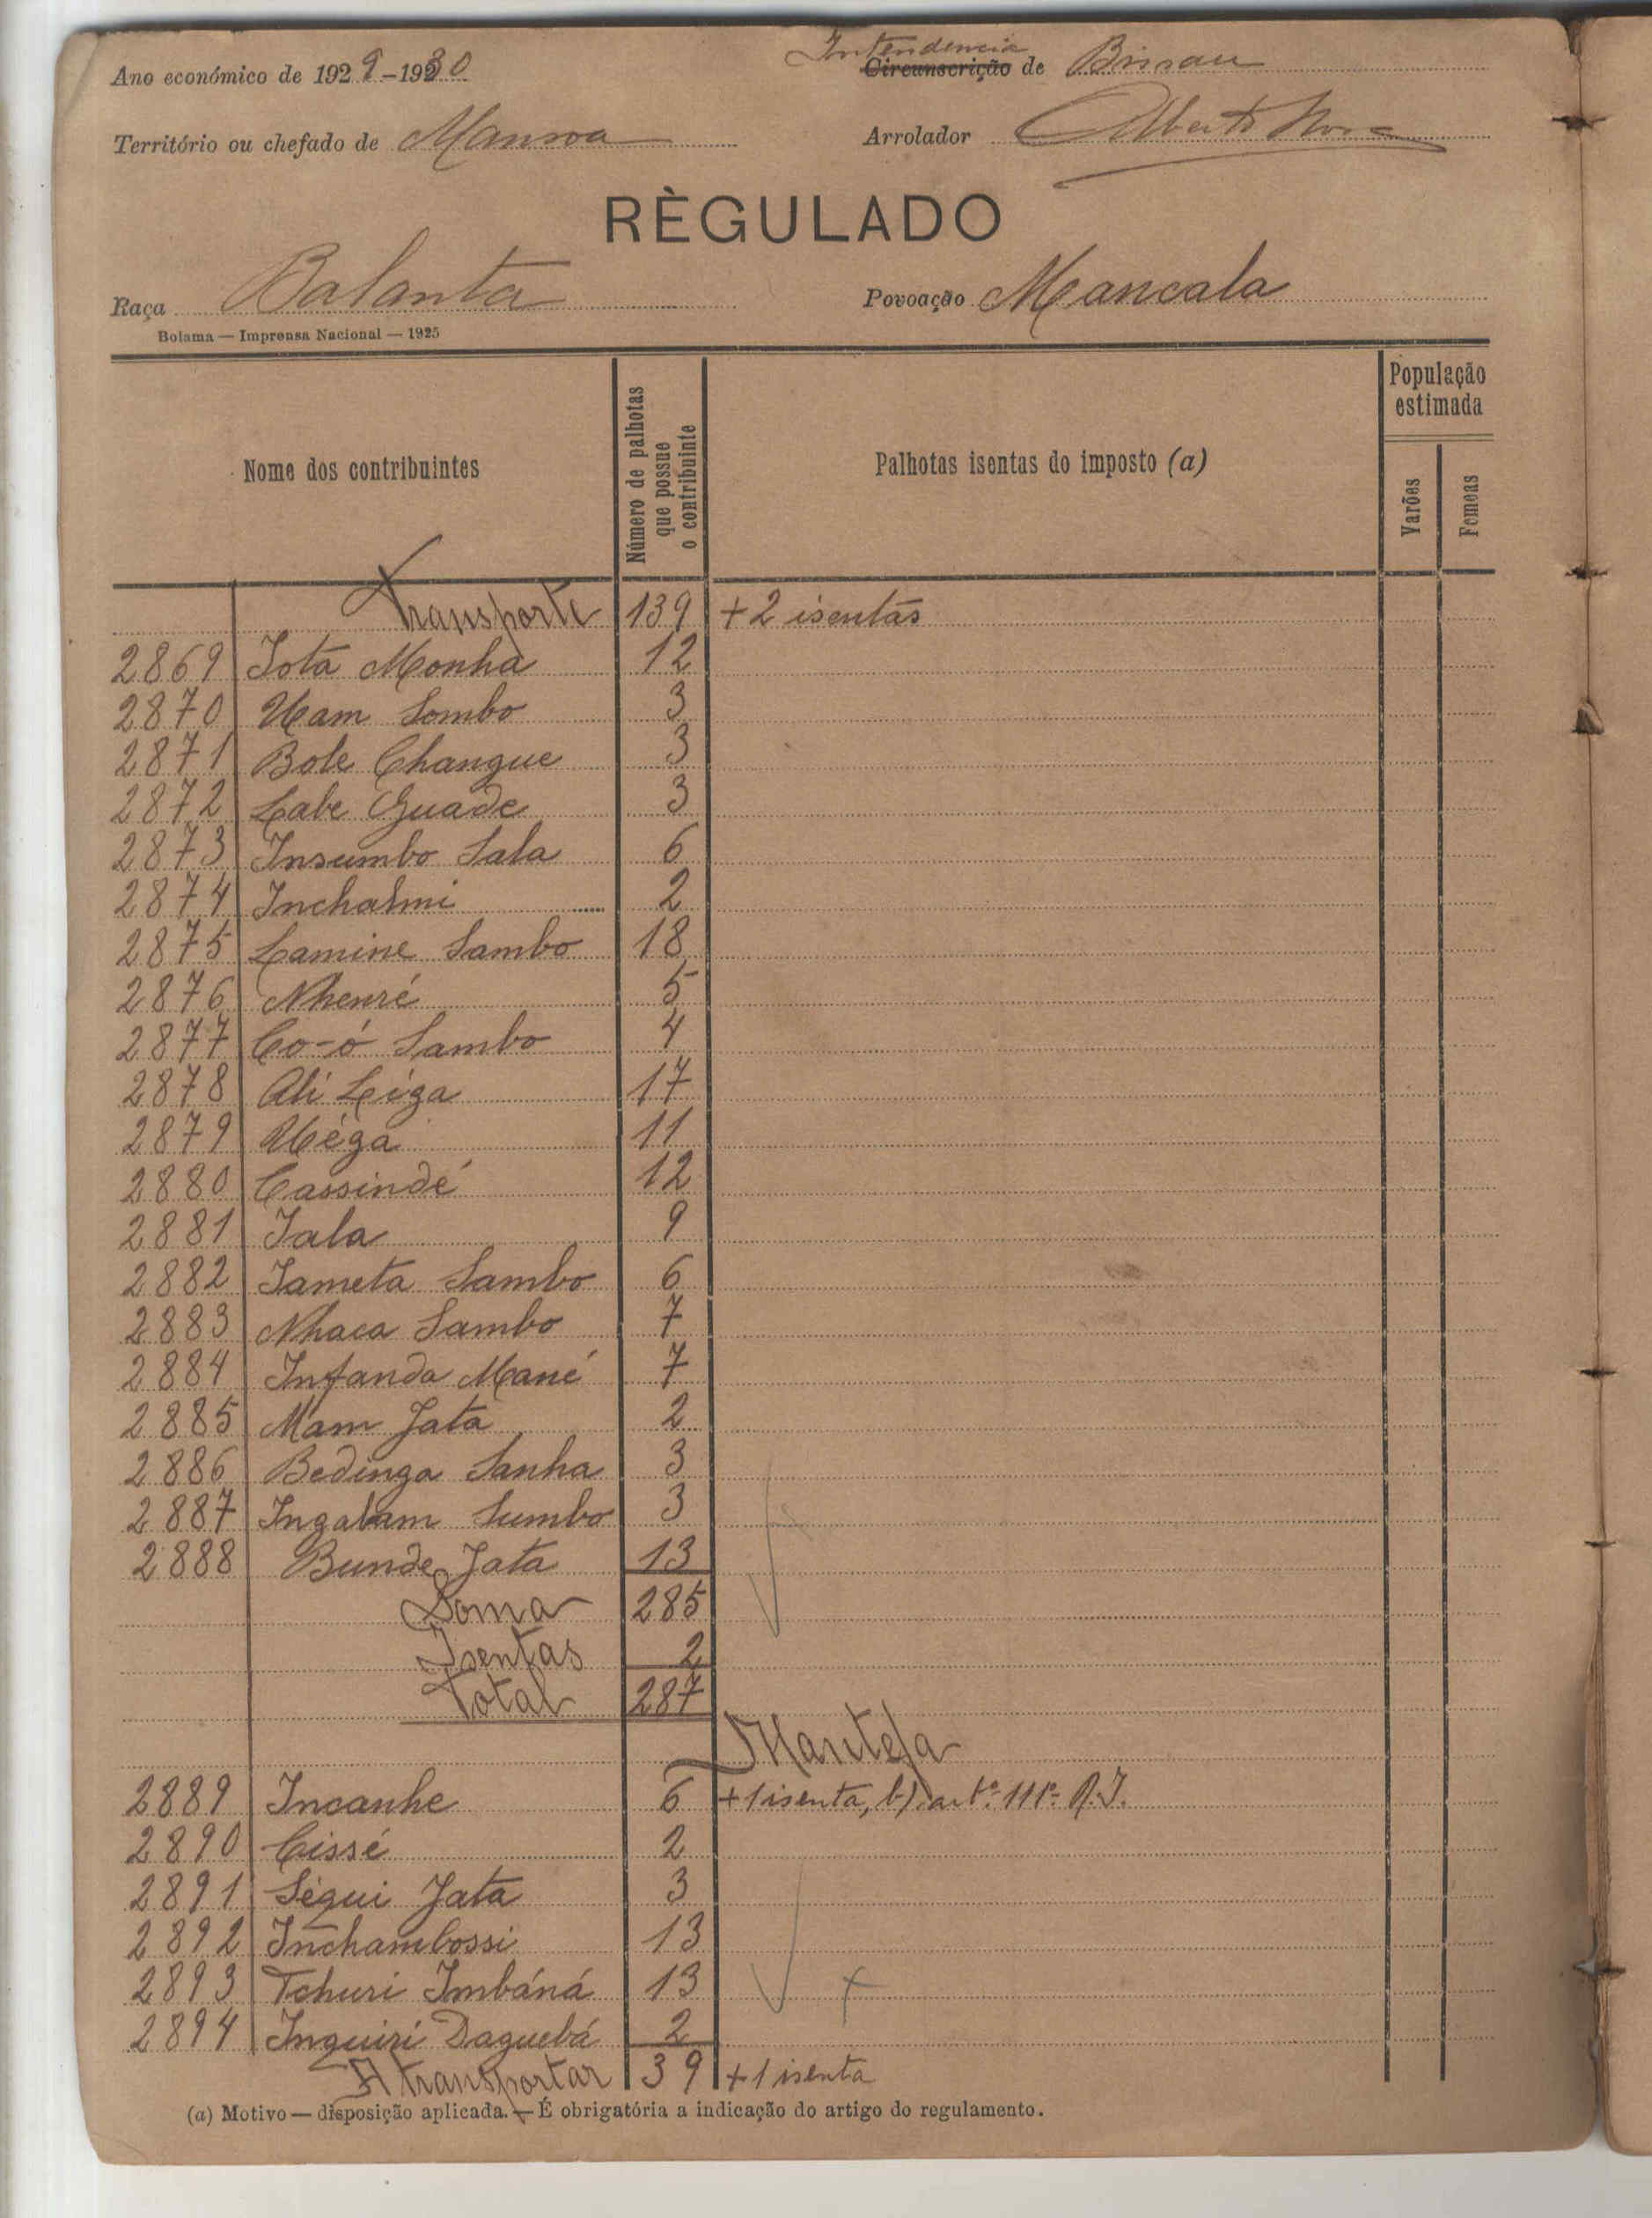 Ano económico de 1929-1930
Intendencia
Circunscrição de Bissau
Território ou chefado de Mansoa
Arrolador Alberto
RÈGULADO
Raça Balanta
Povoação Mancala
Bolama — Imprensa Nacional — 1925
Nome dos contribuintes
Número de palhotas que possue o contribuinte
Palhotas isentas do imposto (a)
População estimada
Varões
Femeas
Transporte 139 +2 isentas
2869 Iota Monha 12
2870 Uam Sombo 3
2871 Bole Changue 3
2872 Labe Guade 3
2873 Insumbo Sala 6
2874 Inchalmi 2
2875 Lamine Sambo 18
2876 Nhenré 5
2877 Co-ó Sambo 4
2878 Ali Leiga 17
2879 Uéga 11
2880 Cassindé 12
2881 Iala 9
2882 Iameta Sambo 6
2883 Nhaca Sambo 7
2884 Infanda Mané 7
2885 Mam Jata 2
2886 Bedinga Sanha 3
2887 Ingalam Sumbo 3
2888 Bunde Jata 13
Soma 285
Isentas 2
Total 287
Mantefa
2889 Incanhe 6 +1 isenta, b) artº. 111º. R.I.
2890 Cissé 2
2891 Ségui Jata 3
2892 Inchambossi 13
2893 Tchuri Imbáná 13
2894 Inguiri Daguebá 2
A transportar 39 +1 isenta
(a) Motivo — disposição aplicada. — É obrigatória a indicação do artigo do regulamento.